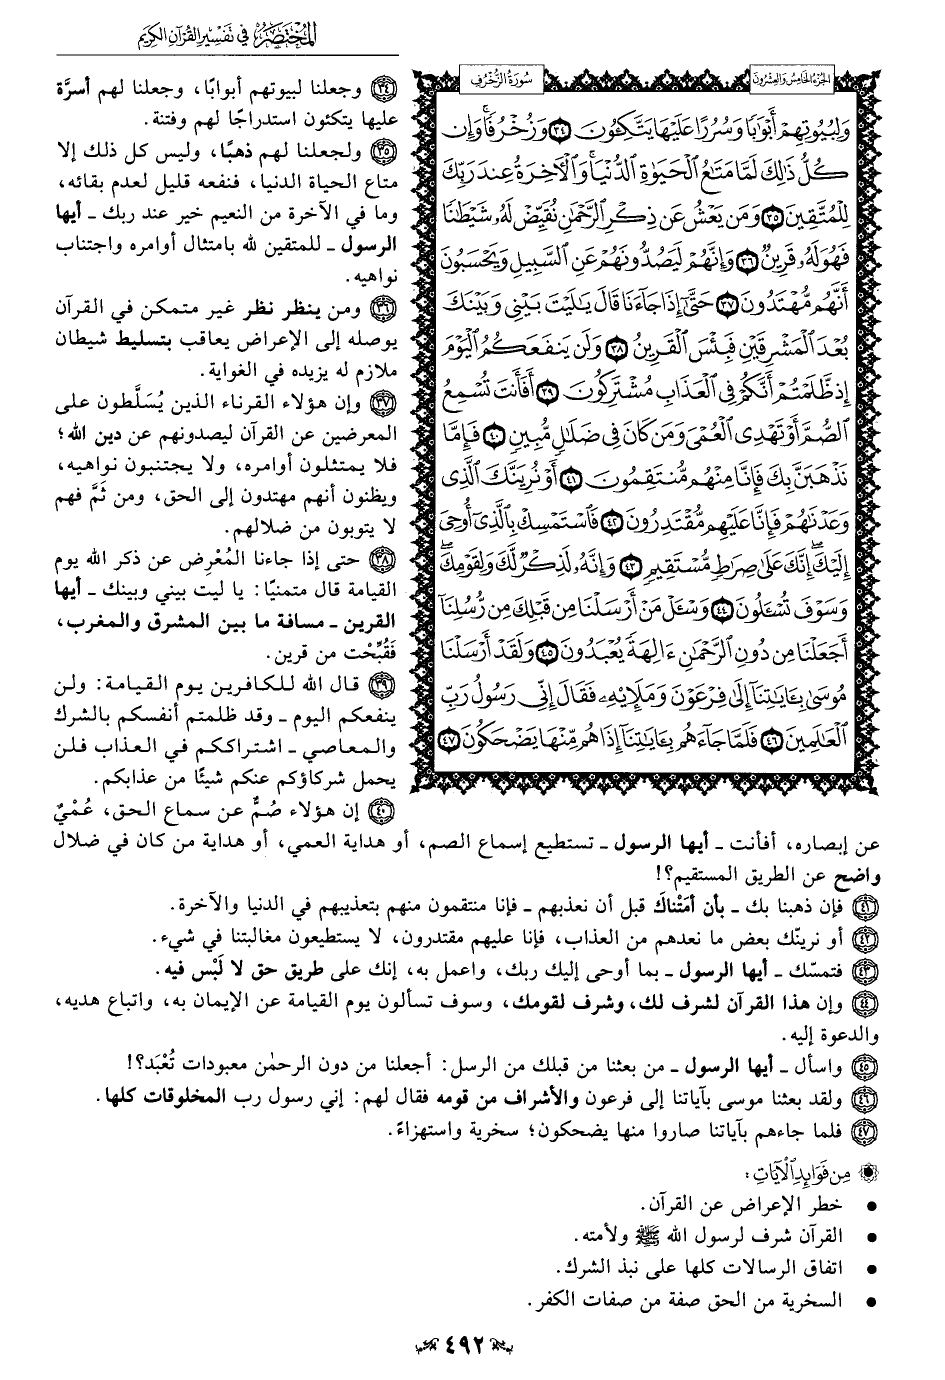 المختصر في تفسير القرآن الكريم
الجزء الخامس والعشرون
سورة الزخرف
وَلِبُيُوتِهِمْ أَبْوَٰبًا وَسُرُرًا عَلَيْهَا يَتَّكِـُٔونَ ٣٤ وَزُخْرُفًا ۚ وَإِن
كُلُّ ذَٰلِكَ لَمَّا مَتَٰعُ ٱلْحَيَوٰةِ ٱلدُّنْيَا ۚ وَٱلْـَٔاخِرَةُ عِندَ رَبِّكَ
لِلْمُتَّقِينَ ٣٥ وَمَن يَعْشُ عَن ذِكْرِ ٱلرَّحْمَٰنِ نُقَيِّضْ لَهُۥ شَيْطَٰنًا
فَهُوَ لَهُۥ قَرِينٌ ٣٦ وَإِنَّهُمْ لَيَصُدُّونَهُمْ عَنِ ٱلسَّبِيلِ وَيَحْسَبُونَ
أَنَّهُم مُّهْتَدُونَ ٣٧ حَتَّىٰٓ إِذَا جَآءَنَا قَالَ يَٰلَيْتَ بَيْنِى وَبَيْنَكَ
بُعْدَ ٱلْمَشْرِقَيْنِ فَبِئْسَ ٱلْقَرِينُ ٣٨ وَلَن يَنفَعَكُمُ ٱلْيَوْمَ
إِذ ظَّلَمْتُمْ أَنَّكُمْ فِى ٱلْعَذَابِ مُشْتَرِكُونَ ٣٩ أَفَأَنتَ تُسْمِعُ
ٱلصُّمَّ أَوْ تَهْدِى ٱلْعُمْىَ وَمَن كَانَ فِى ضَلَٰلٍ مُّبِينٍ ٤٠ فَإِمَّا
نَذْهَبَنَّ بِكَ فَإِنَّا مِنْهُم مُّنتَقِمُونَ ٤١ أَوْ نُرِيَنَّكَ ٱلَّذِى
وَعَدْنَٰهُمْ فَإِنَّا عَلَيْهِم مُّقْتَدِرُونَ ٤٢ فَٱسْتَمْسِكْ بِٱلَّذِىٓ أُوحِىَ
إِلَيْكَ ۖ إِنَّكَ عَلَىٰ صِرَٰطٍ مُّسْتَقِيمٍ ٤٣ وَإِنَّهُۥ لَذِكْرٌ لَّكَ وَلِقَوْمِكَ ۖ
وَسَوْفَ تُسْـَٔلُونَ ٤٤ وَسْـَٔلْ مَنْ أَرْسَلْنَا مِن قَبْلِكَ مِن رُّسُلِنَآ
أَجَعَلْنَا مِن دُونِ ٱلرَّحْمَٰنِ ءَالِهَةً يُعْبَدُونَ ٤٥ وَلَقَدْ أَرْسَلْنَا
مُوسَىٰ بِـَٔايَٰتِنَآ إِلَىٰ فِرْعَوْنَ وَمَلَإِي۟هِۦ فَقَالَ إِنِّى رَسُولُ رَبِّ
ٱلْعَٰلَمِينَ ٤٦ فَلَمَّا جَآءَهُم بِـَٔايَٰتِنَآ إِذَا هُم مِّنْهَا يَضْحَكُونَ ٤٧
٣٤ وجعلنا لبيوتهم أبوابًا، وجعلنا لهم أسرَّة
عليها يتكئون استدراجًا لهم وفتنة.
٣٥ ولجعلنا لهم ذهبًا، وليس كل ذلك إلا
متاع الحياة الدنيا، فنفعه قليل لعدم بقائه،
وما في الآخرة من النعيم خير عند ربك ـ أيها
الرسول ـ للمتقين لله بامتثال أوامره واجتناب
نواهيه.
٣٦ ومن ينظر نظر غير متمكن في القرآن
يوصله إلى الإعراض يعاقب بتسليط شيطان
ملازم له يزيده في الغواية.
٣٧ وإن هؤلاء القرناء الذين يُسَلَّطون على
المعرضين عن القرآن ليصدونهم عن دين الله؛
فلا يمتثلون أوامره، ولا يجتنبون نواهيه،
ويظنون أنهم مهتدون إلى الحق، ومن ثَمَّ فهم
لا يتوبون من ضلالهم.
٣٨ حتى إذا جاءنا المُعْرِض عن ذكر الله يوم
القيامة قال متمنيًا: يا ليت بيني وبينك ـ أيها
القرين ـ مسافة ما بين المشرق والمغرب،
فَقُبِّحْت من قرين.
٣٩ قال الله للكافرين يوم القيامة: ولن
ينفعكم اليوم ـ وقد ظلمتم أنفسكم بالشرك
والمعاصي ـ اشتراككم في العذاب فلن
يحمل شركاؤكم عنكم شيئًا من عذابكم.
٤٠ إن هؤلاء صُمٌّ عن سماع الحق، عُمْيٌ
عن إبصاره، أفأنت ـ أيها الرسول ـ تستطيع إسماع الصم، أو هداية العمي، أو هداية من كان في ضلال
واضح عن الطريق المستقيم؟!
٤١ فإن ذهبنا بك ـ بأن أمَتْناكَ قبل أن نعذبهم ـ فإنا منتقمون منهم بتعذيبهم في الدنيا والآخرة.
٤٢ أو نرينّك بعض ما نعدهم من العذاب، فإنا عليهم مقتدرون، لا يستطيعون مغالبتنا في شيء.
٤٣ فتمسّك ـ أيها الرسول ـ بما أوحى إليك ربك، واعمل به، إنك على طريق حق لا لَبْس فيه.
٤٤ وإن هذا القرآن لشرف لك، وشرف لقومك، وسوف تسألون يوم القيامة عن الإيمان به، واتباع هديه،
والدعوة إليه.
٤٥ واسأل ـ أيها الرسول ـ من بعثنا من قبلك من الرسل: أجعلنا من دون الرحمٰن معبودات تُعْبَد؟!
٤٦ ولقد بعثنا موسى بآياتنا إلى فرعون والأشراف من قومه فقال لهم: إني رسول رب المخلوقات كلها.
٤٧ فلما جاءهم بآياتنا صاروا منها يضحكون؛ سخرية واستهزاءً.
من فوائد الآيات:
• خطر الإعراض عن القرآن.
• القرآن شرف لرسول الله ﷺ ولأمته.
• اتفاق الرسالات كلها على نبذ الشرك.
• السخرية من الحق صفة من صفات الكفر.
٤٩٢